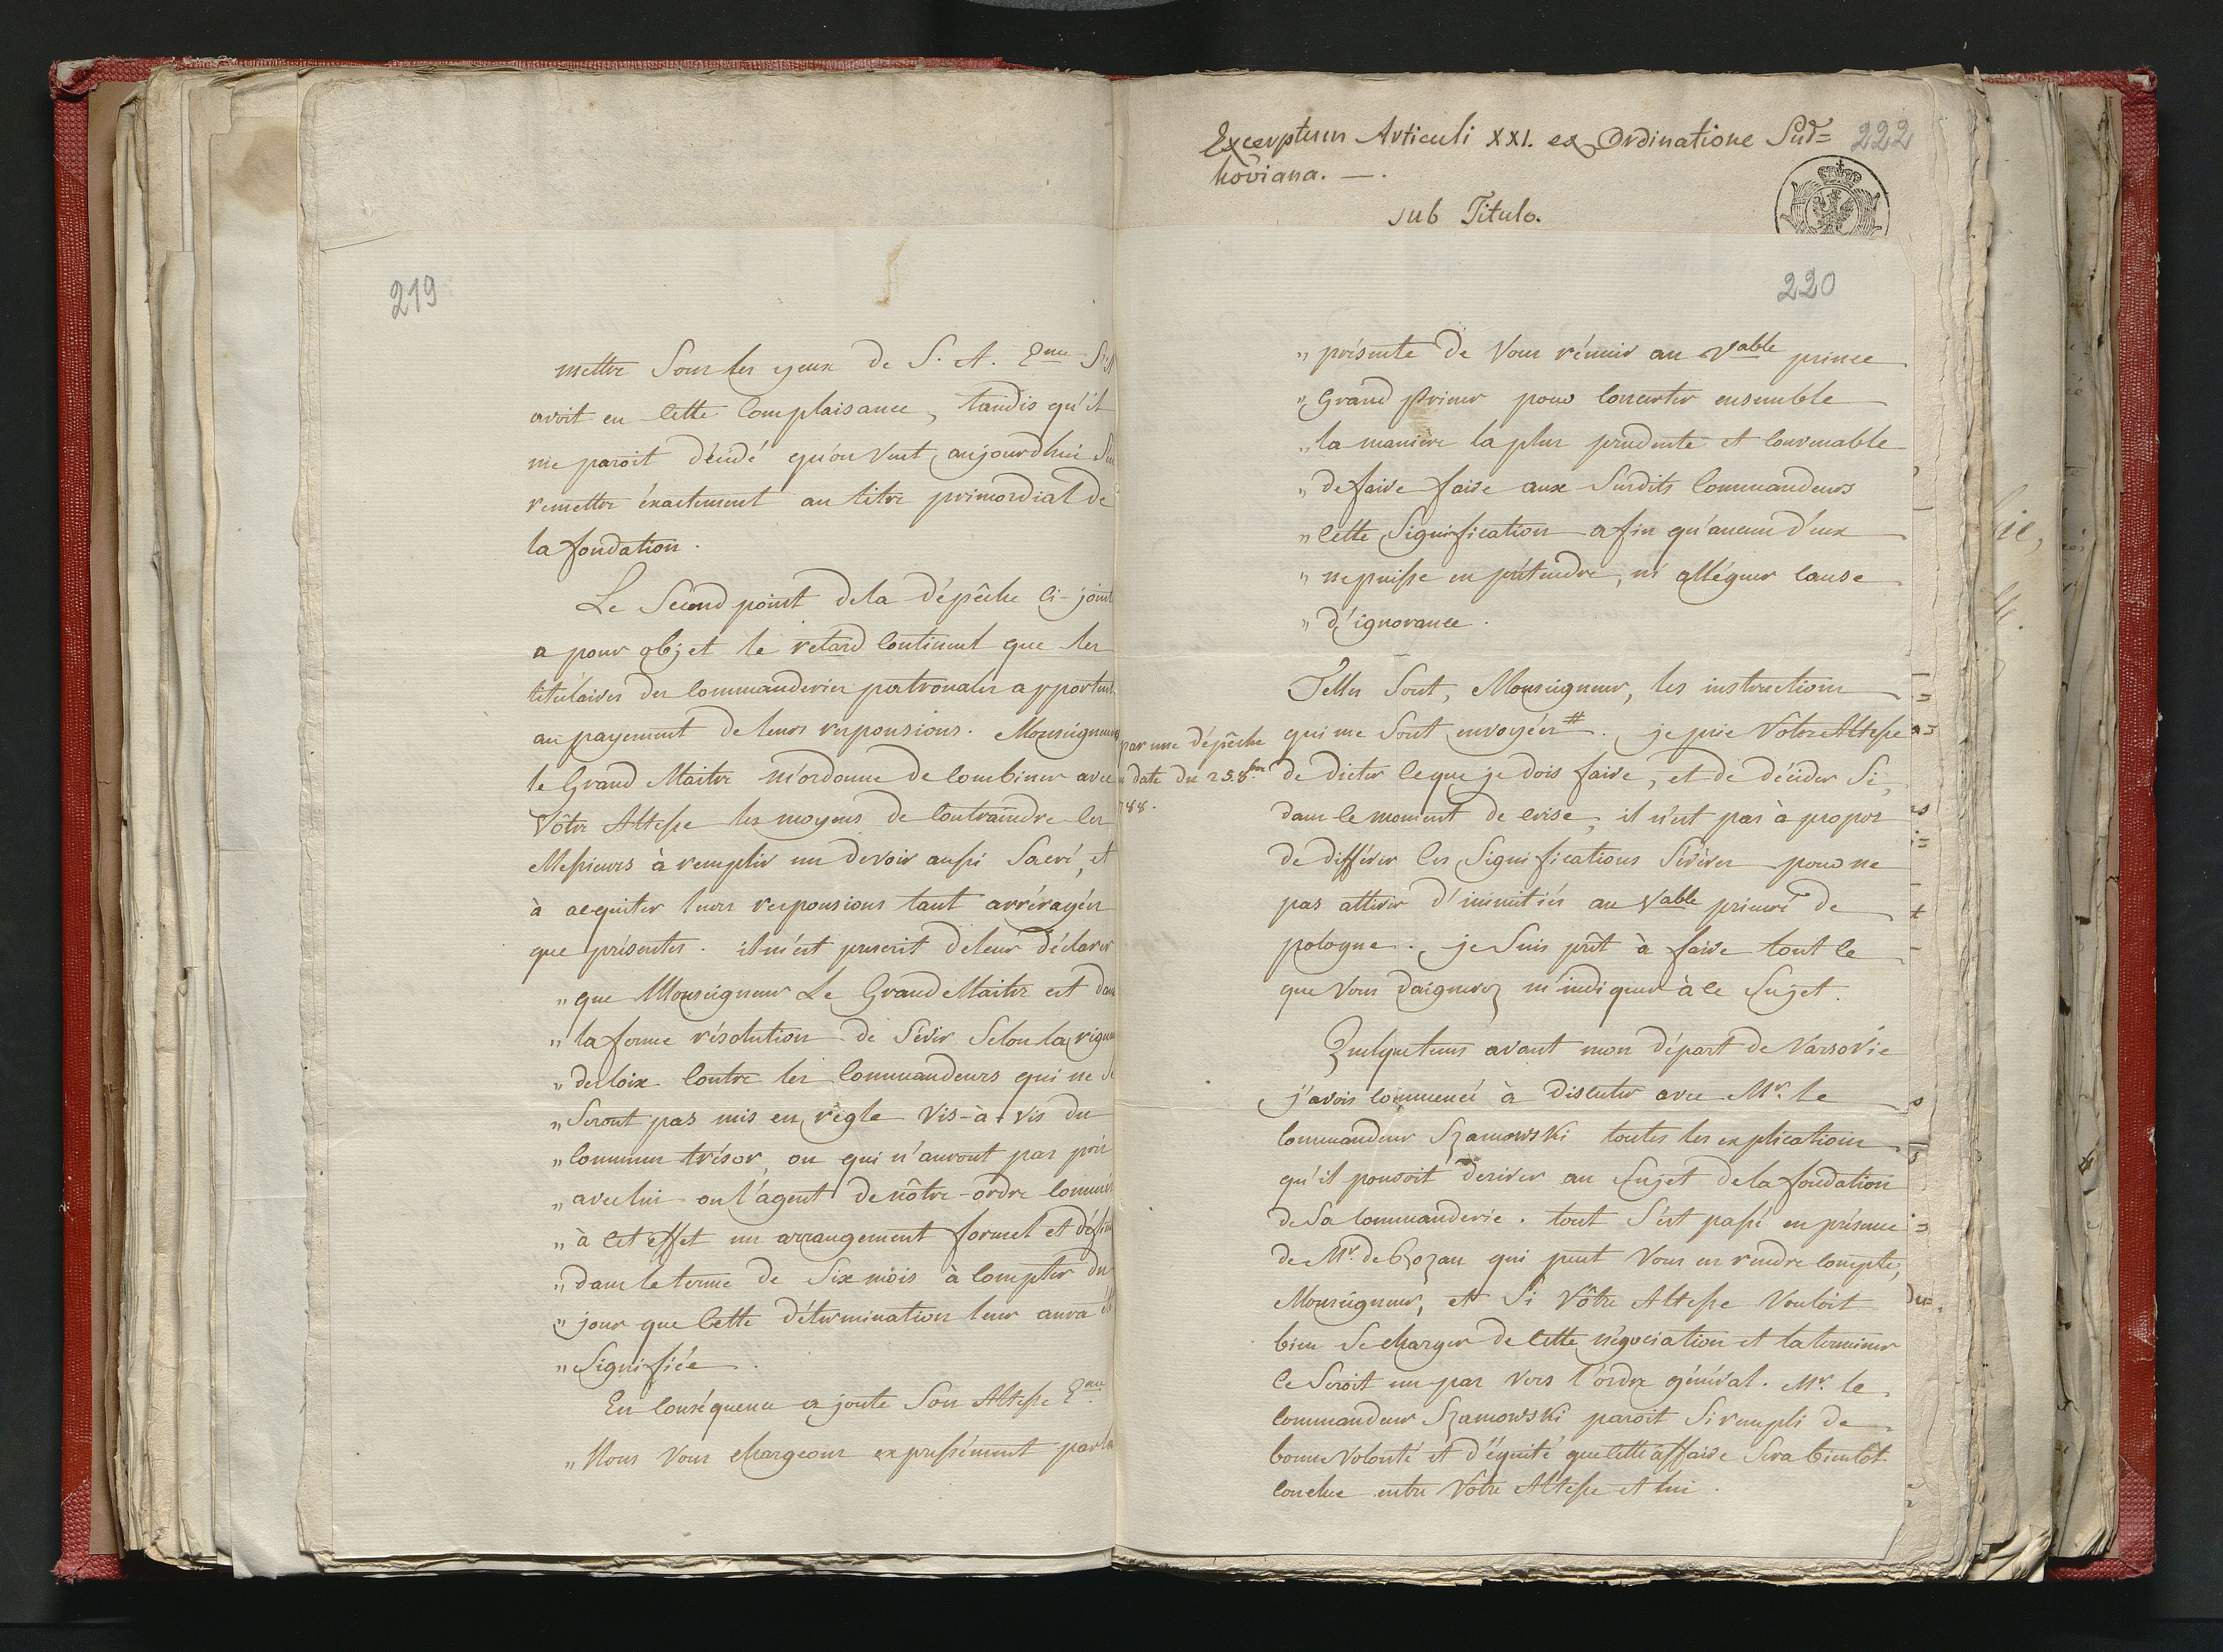 219
mettre Sous les yeux de S. A. Eme S'il
avoit eu Cette Complaisance, tandis qu'il
me paroit décidé qu'on veut aujourdhui Se
remettre éxactement au titre primordial de
la fondation.
Le Second point dela dépêche Ci-joint
a pour objet le retard Continuel que les
titulaires des Commanderies patronales apportent
au payement de leurs responsions. Monseigneur
le Grand Maitre m'ordonne de Combiner avec
Vôtre Altesse les moyens de Contraindre les
Messieurs à remplir un devoir aussi Sacré, et
à acquiter leurs responsions tant arréragées
que présentes. il m'est prescrit deleur déclarer
„ que Monseigneur Le Grand Maitre est dans
„ la ferme résolution de Sévir Selon la rigueur
„ des loix Contre les Commandeurs qui ne Se
„ Seront pas mis en règle vis-à-vis du
„ Commun trésor, ou qui n'auront pas pris
„ avec lui ou l'agent de nôtre-ordre
„ à Cet effet un arrangement formel et
„ dans le terme de Six mois à Compter du
„ jour que Cette détermination leur aura été
„ Signifiée.
En Conséquence ajoute Son Altesse Eme
„ Nous Vous Chargeons expressément par la
Excerptum Articuli XXI. ex Ordinatione Sud=
hoviana. —.
sub Titulo.
222
220
„ présente de Vous réunir au Vable prince
„ Grand Prieur pour Concerter ensemble
„ la manière la plus prudente et Convenable
„ de faire faire aux Susdits Commandeurs
„ Cette Signification afin qu'aucun d'eux
„ ne puisse en prétendre, ni alléguer Cause
„ d'ignorance.
Telles Sont, Monseigneur, les instructions
qui me Sont envoyées #. je prie Votre Altesse
par une dépêche
date du 25 8bre
788.
de dicter Ceque je dois faire, et de décider Si,
dans le moment de Crise, il n'est pas à propos
de différer les Significations Sévères pour ne
pas attirer d'inimitiés au Vable prieuré de
pologne. je Suis prêt à faire tout Ce
que Vous daignerez m'indiquer à Ce Sujet.
Quelquetems avant mon départ de Varsovie
j'avois Commencé à discuter avec Mr. le
Commandeur Szamowski toutes les explications
qu'il pouvoit desirer au Sujet dela fondation
de Sa Commanderie. tout S'est passé en présence
de Mr. de Rozan qui peut Vous en rendre Compte,
Monseigneur, et Si Vôtre Altesse Vouloit
bien Se Charger de Cette négociation et la terminer
Ce Seroit un pas vers l'ordre général. Mr. le
Commandeur Szamowski paroit Si rempli de
bonne Volonté et d'équité que Cette affaire Sera bientôt
Conclue entre Vôtre Altesse et lui.